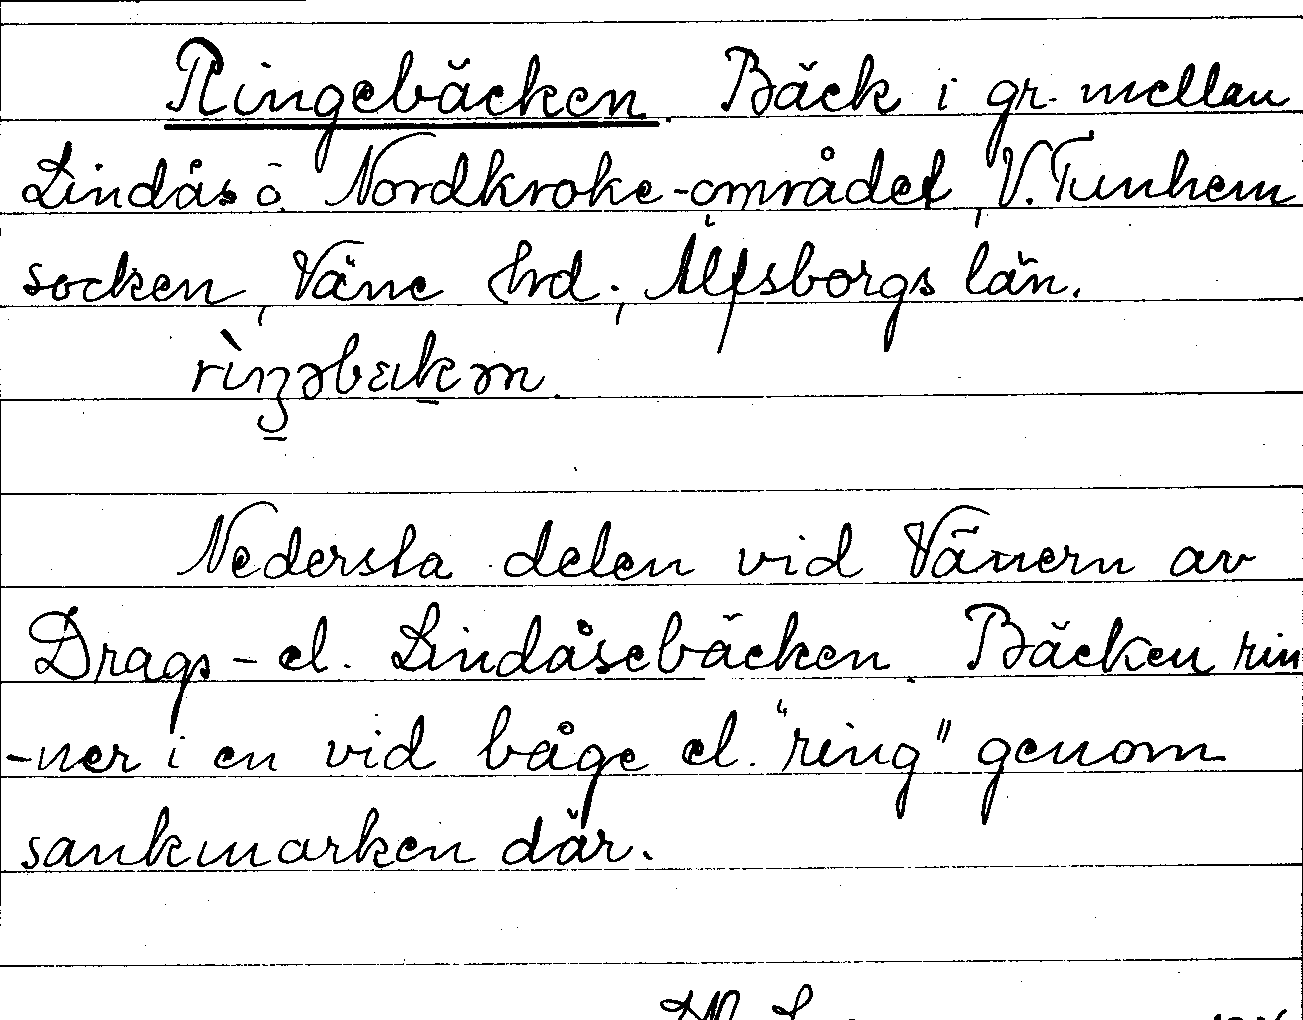 Ringebäcken. Bäck i gr. mellan
Lindås o. Nordkroke-området, V. Tunhem
socken, Väne hrd., Älfsborgs län.
Nedersta delen vid Vänern av
Drags- el. Lindåsebäcken. Bäcken rin
-ner i en vid båge el. "ring" genom
sankmarken där.